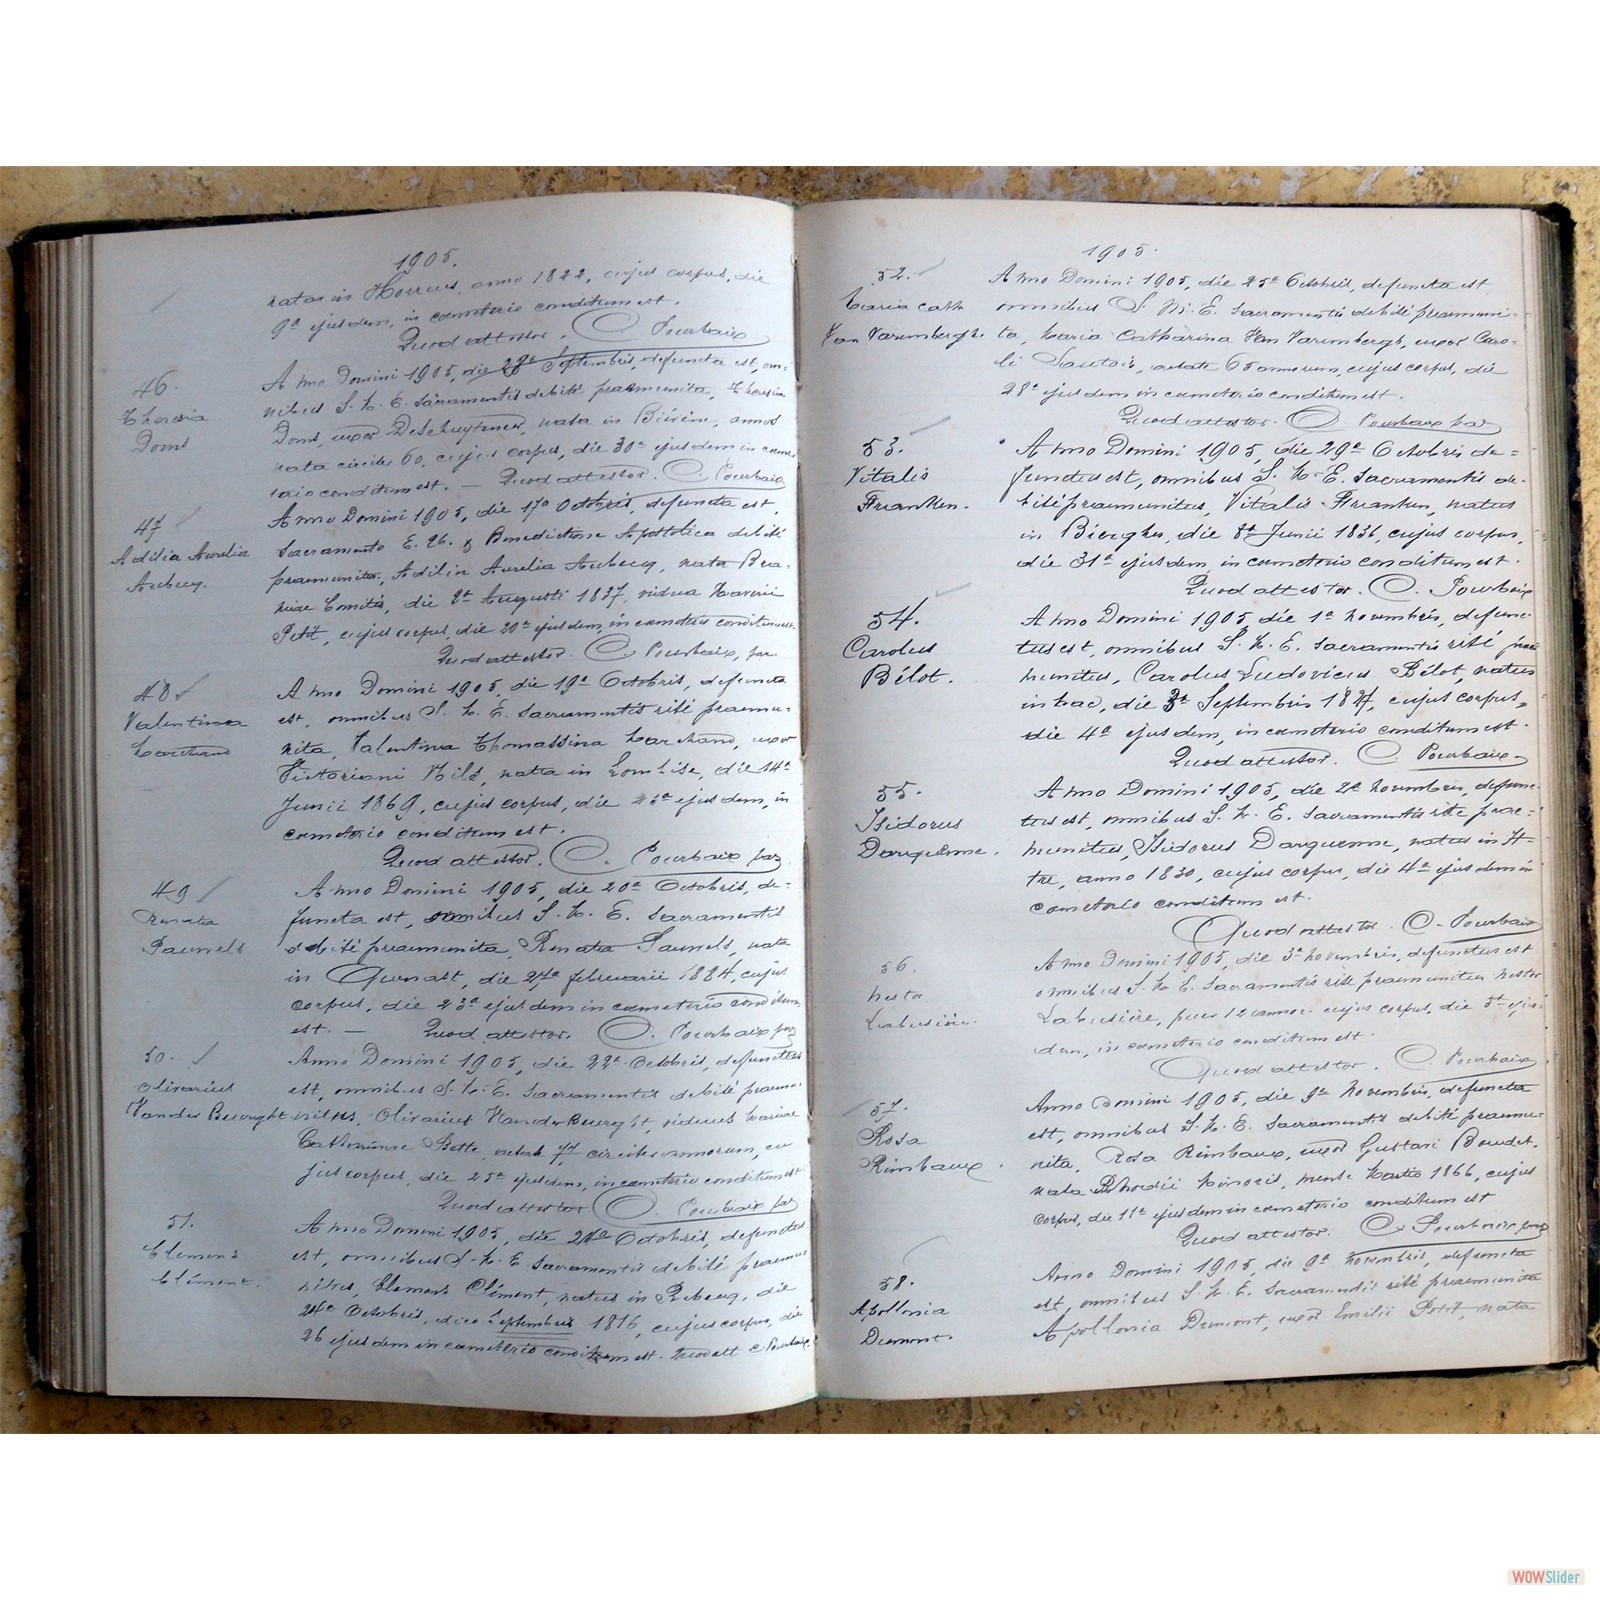 1905.
natus in Horrues, anno 1822, cujus corpus, die
9ª ejusdem, in cœmeterio conditum est.
Quod attestor. C. Pourbaix
46.
Theresia
Doms
Anno Domini 1905, die 28ª Septembris, defuncta est, om-
nibus S. M. E. Sacramentis debitè praemunita, Theresia
Doms, uxor DeSchuytener, nata in Biévène, annos
nata circiter 60, cujus corpus, die 30ª ejusdem in cœme-
terio conditum est. — Quod attestor. C. Pourbaix
47
Adilia Aurelia
Aubecq.
Anno Domini 1905, die 17ª Octobris, defuncta est,
Sacramento E. U. & Benedictione Apostolica debitè
praemunita, Adilia Aurelia Aubecq, nata
Comitis, die 2ª Augusti 1837, vidua Xaverii
Petit, cujus corpus, die 20ª ejusdem, in cœmeterio conditum est.
Quod attestor. C. Pourbaix, par.
48
Valentina
Marchand
Anno Domini 1905, die 19ª Octobris, defuncta
est, omnibus S. M. E. Sacramentis ritè praemu-
nita, Valentina Thomassina Marchand, uxor
Victoriani Nils, nata in Lombise, die 14ª
Junii 1869, cujus corpus, die 23ª ejusdem, in
cœmeterio conditum est.
Quod attestor. C. Pourbaix par
49
Renata
Pauwels
Anno Domini 1905, die 20ª Octobris, de-
functa est, omnibus S. M. E. Sacramentis
debitè praemunita, Renata Pauwels, nata
in Quenast, die 27ª februarii 1884, cujus
corpus, die 23ª ejusdem in cœmeterio conditum
est. — Quod attestor. C. Pourbaix par
50.
Olivarius
Vander Beurght
Anno Domini 1905, die 22ª Octobris, defunctus
est, omnibus S. M. E. Sacramentis debitè praemu-
nitus, Olivarius Vander Beurght, viduus Mariae
Catharinae Bette, aetate 77 circiter annorum, cu
jus corpus, die 25ª ejusdem, in cœmeterio conditum est
Quod attestor. C. Pourbaix par
51.
Clemens
Clément.
Anno Domini 1905, die 24ª Octobris, defunctus
est, omnibus S. M. E. Sacramentis debitè praemu
nitus, Clemens Clément, natus in Rebecq, die
24ª Octobris, dico Septembris 1816, cujus corpus, die
26 ejusdem in cœmeterio conditum est. Quod att C Pourbaix
1905.
52.
Maria Cath
Van Varembergh.
Anno Domini 1905, die 25ª Octobris, defuncta est
omnibus S. M. E. Sacramentis debitè praemuni-
ta, Maria Catharina Van Varembergh, uxor Caro-
li Sautois, aetate 65 annorum, cujus corpus, die
28ª ejusdem in cœmeterio conditum est.
Quod attestor. C. Pourbaix par
53.
Vitalis
Franken.
Anno Domini 1905, die 29ª Octobris de=
functus est, omnibus S. M. E. Sacramentis de-
bitè praemunitus, Vitalis Franken, natus
in Bierghes, die 8ª Junii 1836, cujus corpus,
die 31ª ejusdem, in cœmeterio conditum est.
Quod attestor. C. Pourbaix
54.
Carolus
Bélot.
Anno Domini 1905 die 1ª novembris, defunc-
tus est, omnibus S. M. E. Sacramentis ritè prae
munitus, Carolus Ludovicus Bélot, natus
in hac, die 3ª Septembris 1827, cujus corpus,
die 4ª ejusdem, in cœmeterio conditum est.
Quod attestor. C. Pourbaix
55.
Isidorus
Darquenne.
Anno Domini 1905, die 2ª novembris, defunc-
tus est, omnibus S. M. E. Sacramentis ritè prae-
munitus, Isidorus Darquenne, natus in It-
tre, anno 1830, cujus corpus, die 4ª ejusdem in
cœmeterio conditum est.
Quod attestor. C. Pourbaix
56.
Nestor
Labusière.
Anno Domini 1905, die 3ª novembris, defunctus est
omnibus S. M. E. Sacramentis ritè praemunitus Nestor
Labusière, puer 12 annor. cujus corpus, die 5ª ejus-
dem, in cœmeterio conditum est
Quod attestor. C. Pourbaix
57.
Rosa
Rimbaux.
Anno Domini 1905, die 9ª novembris, defuncta
est, omnibus S. M. E. Sacramentis debitè praemu-
nita, Rosa Rimbaux, uxor Gustavi Boudet,
nata Rhodii Minoris, mense Martio 1866, cujus
corpus, die 11ª ejusdem in cœmeterio conditum est
Quod attestor. C. Pourbaix par
58.
Apollonia
Dumont.
Anno Domini 1905, die 9ª novembris, defuncta
est, omnibus S. M. E. Sacramentis ritè praemunita
Apollonia Dumont, uxor Emilii Petit, nata
WOWSlider